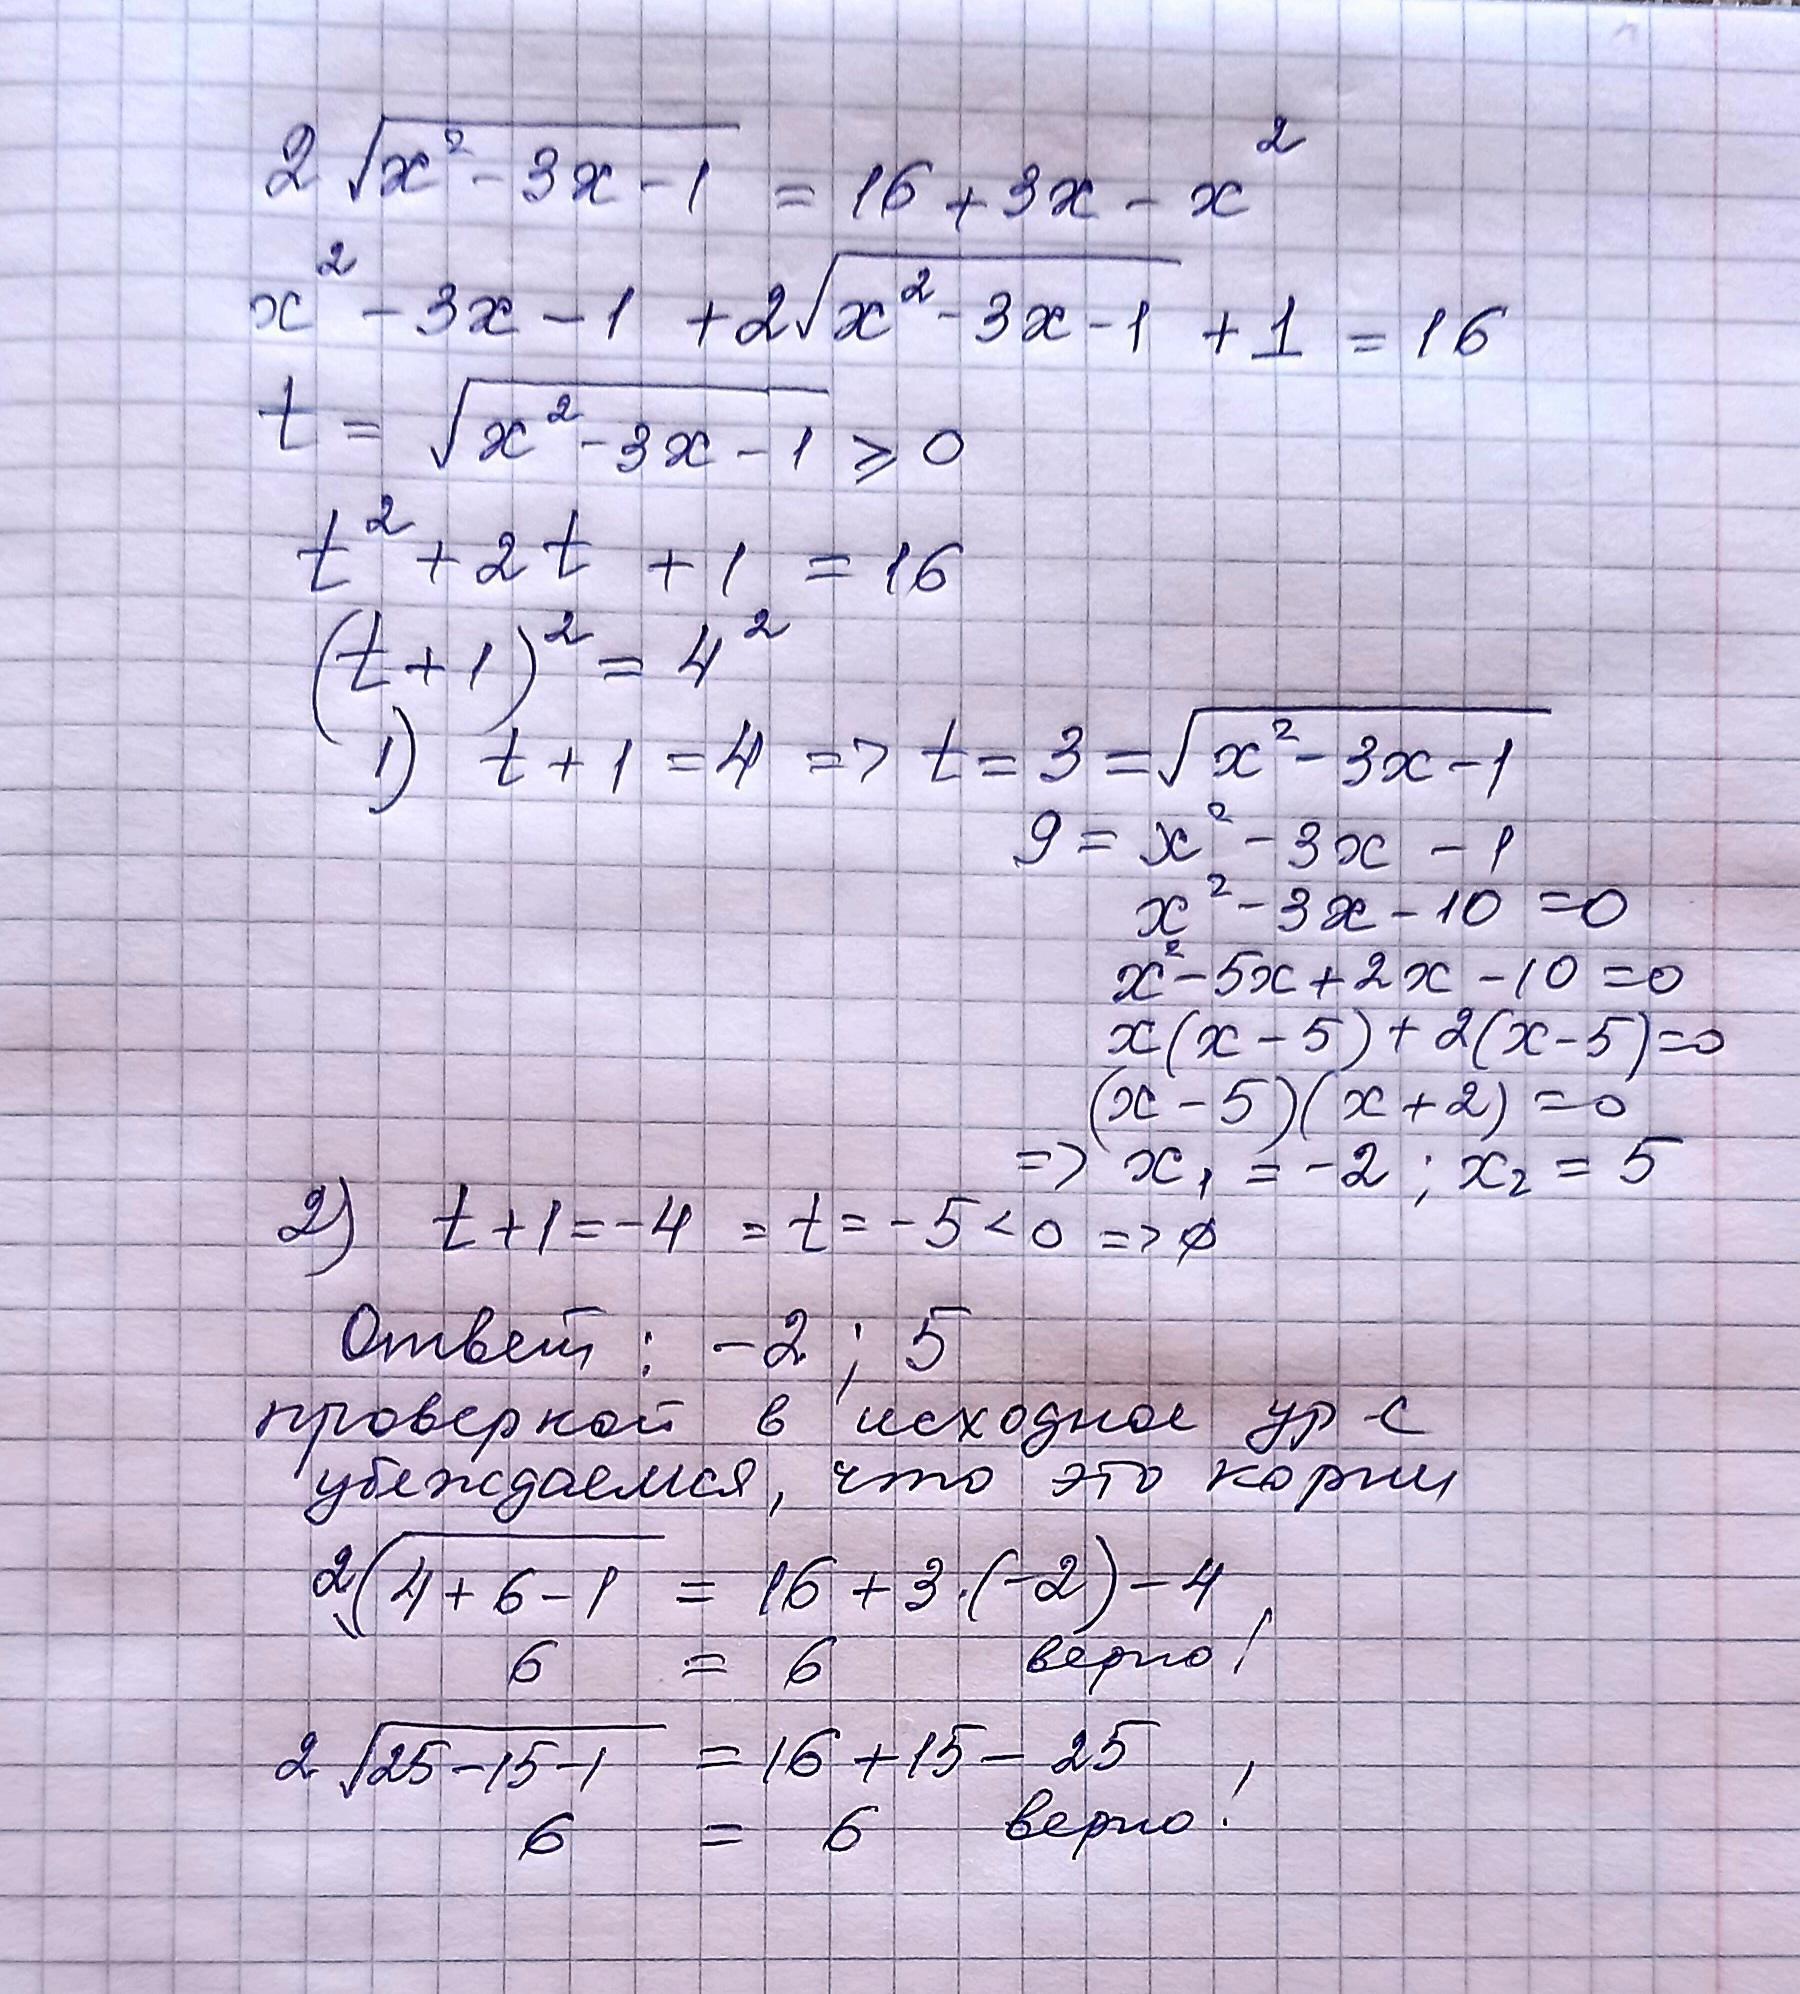 2√(x² - 3x - 1) = 16 + 3x - x²
x² - 3x - 1 + 2√(x² - 3x - 1) + 1 = 16
t = √(x² - 3x - 1) ⩾ 0
t² + 2t + 1 = 16
(t + 1)² = 4²
1) t + 1 = 4 => t = 3 = √(x² - 3x - 1)
9 = x² - 3x - 1
x² - 3x - 10 = 0
x² - 5x + 2x - 10 = 0
x(x - 5) + 2(x - 5) = 0
(x - 5)(x + 2) = 0
=> x₁ = -2 ; x₂ = 5
2) t + 1 = -4 = t = -5 < 0 => ∅
Ответ : -2 ; 5
проверкой в исходное ур-е
убеждаемся, что это корни
2√(4 + 6 - 1) = 16 + 3·(-2) - 4
6 = 6 верно!
2√(25 - 15 - 1) = 16 + 15 - 25
6 = 6 верно!